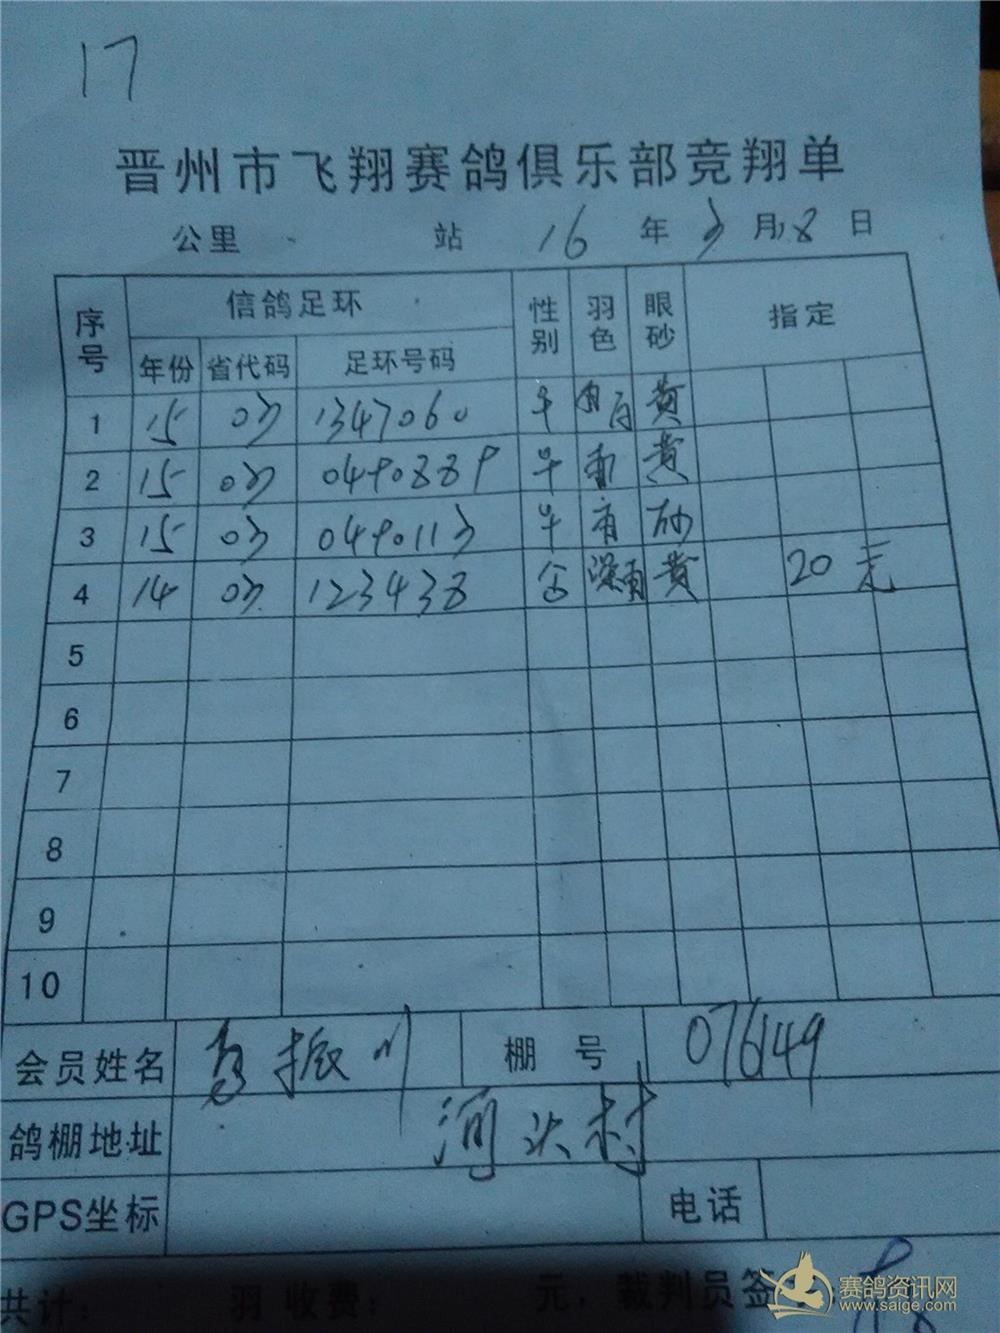 17
晋州市飞翔赛鸽俱乐部竞翔单
公里 站 16 年 3 月 18 日
序号 信鸽足环 性别 羽色 眼砂 指定
年份 省代码 足环号码
1 15 03 1347060 黄
2 15 03 0490889 黄
3 15 03 0490113 砂
4 14 03 123438 黄 20元
5
6
7
8
9
10
会员姓名 振川 棚号 076149
鸽棚地址 河头村
GPS坐标 电话
共计: 羽 收费: 元, 裁判员签字:
赛鸽资讯网
www.saige.com